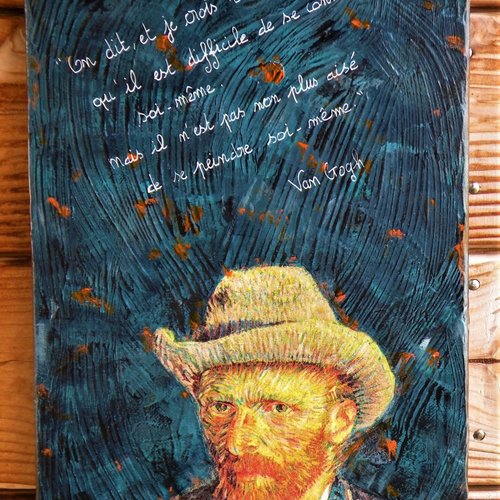 "On dit, et je crois
qu'il est difficile de se con
soi-même.
mais il n'est pas non plus aisé
de se peindre soi-même."
Van Gogh